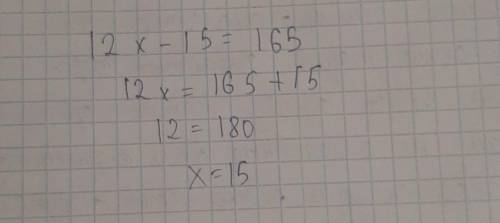 12x-15=165
12x=165+15
12=180
x=15